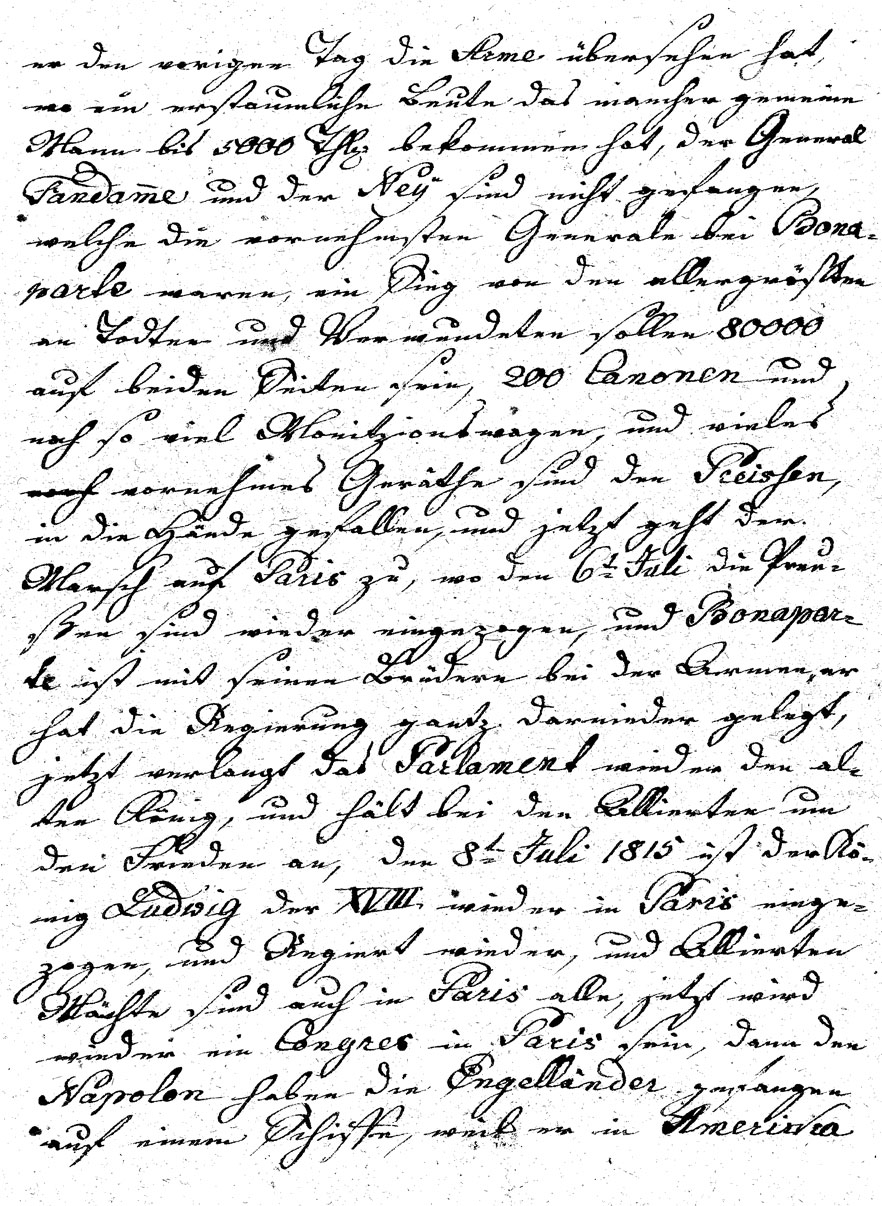 er den vorigen Tag die Arme übersehen hat,
wo ein erstaunliche Beute das mancher gemeine
Mann bis 5000 Thlr bekommen hat, der General
Fandam̅e und der Neÿ sind nicht gefangen,
welche die vornehmsten Generale bei Bona=
parte waren, ein Sieg von den allergrößten
an Todten und Verwundeten sollen 80000
auf beiden Seiten sein, 200 Canonen und
noch so viel Monitzionswägen, und vieles
noch vornehmes Geräthe sind den Preissen,
in die Hände gefallen, und jetzt geht der
Marsch auf Paris zu, wo den 6t Juli die Preu=
ßen sind wieder eingezogen, und Bonapar=
te ist mit seinen Brüdern bei der Armee, er
hat die Regierung gantz darnieder gelegt,
jetzt verlangt das Parlament wieder den al=
ten König, und hält bei den Allierten um
den Frieden an, den 8t Juli 1815 ist der Kö=
nig Ludwig der XVIII. wieder in Paris einge=
zogen, und Regiert wieder, und Allierten
Mächte sind auch in Paris alle, jetzt wird
wieder ein Congres in Paris sein, dann den
Napolon haben die Engelländer gefangen
auf einem Schiffe, weil er in Amerika